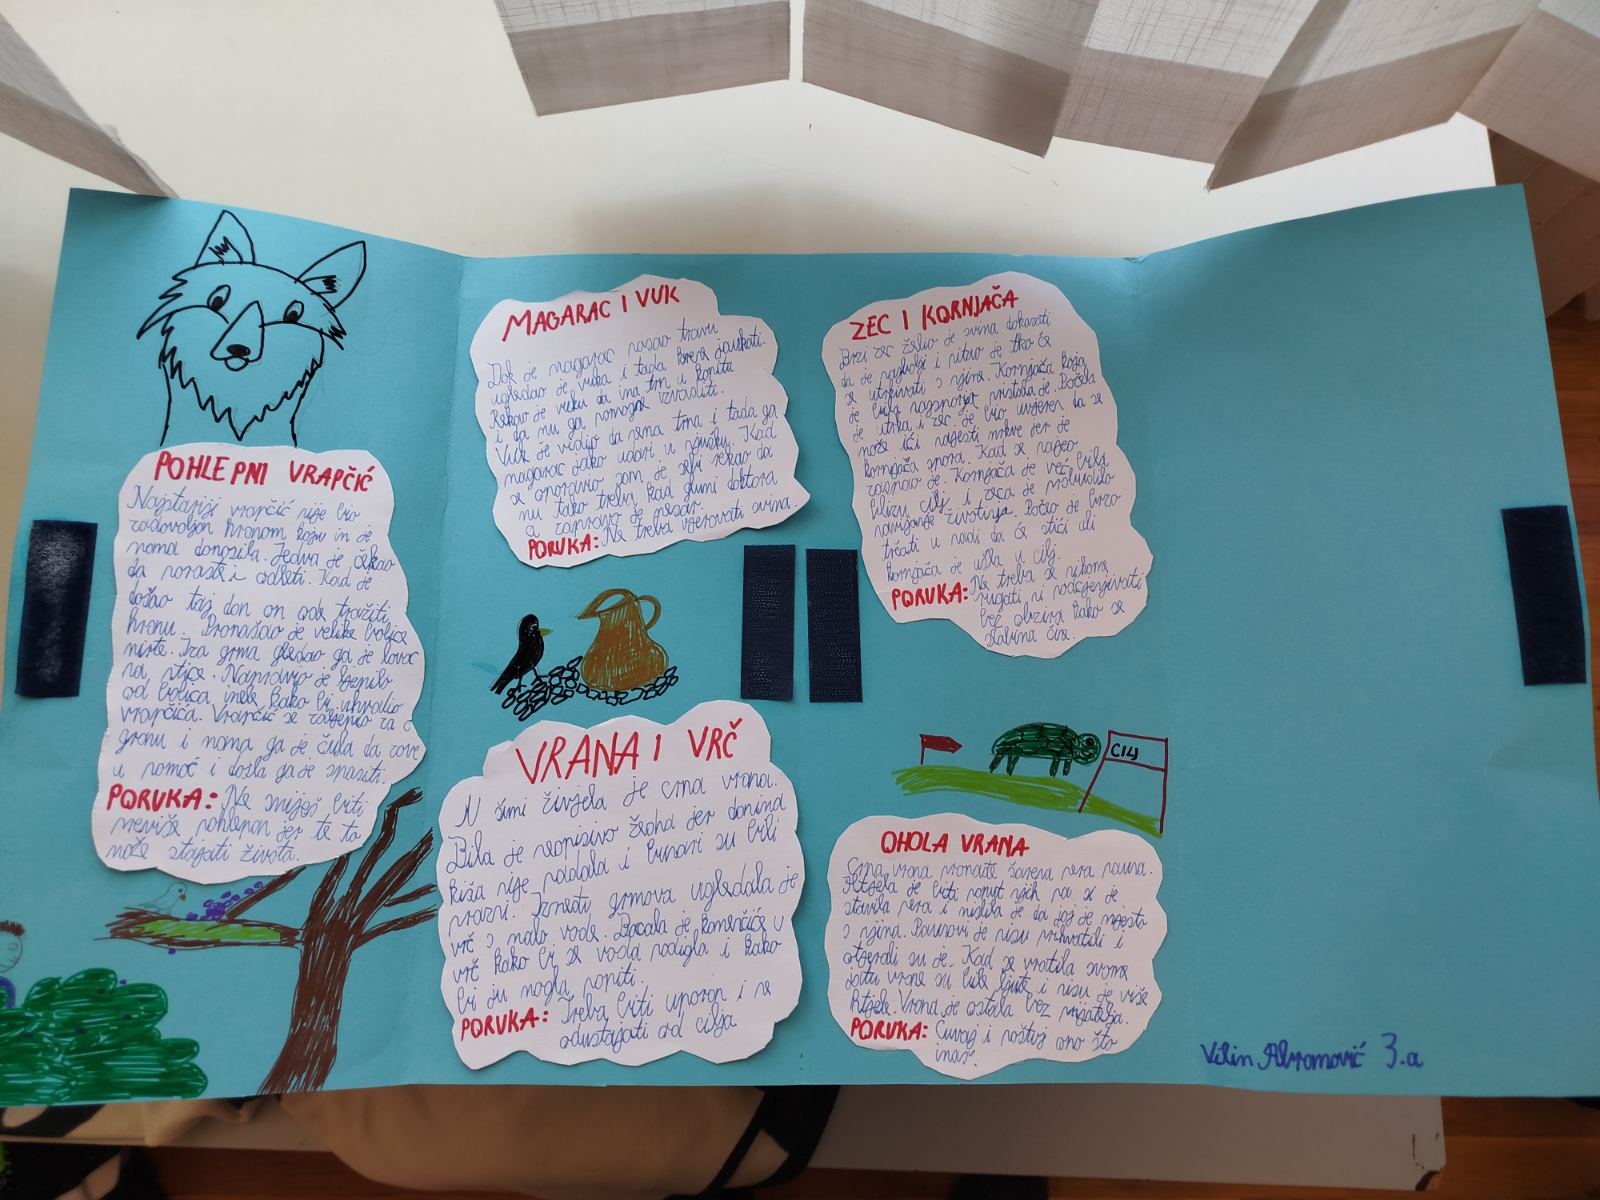 POHLEPNI VRAPČIĆ
Najstariji vrapčić nije bio
zadovoljan hranom koju im je
mama donosila. Jedva je čekao
da poraste i odleti. Kad je
došao taj dan on ode tražiti
hranu. Pronašao je velike boljce
niste. Iza grma gledao ga je lovac
na ptice. Napravio je ljepilo
od bolica imele kako bi uhvatio
vrapčića. Vrapčić se zalijepio za
granu i mama ga je čula da zove
u pomoć i došla ga je spasiti.
PORUKA: Ne smiješ biti
previše pohlepan jer te to
može stajati života.
MAGARAC I VUK
Dok je magarac pasao travu
ugledao je vuka i tada krene jaukati.
Rekao je vuku da ima trn u kopitu
i da mu ga pomogne izvaditi.
Vuk je vidio da nema trna i tada ga
magarac jako udari u njušku. Kad
se oporavio sam je sebi rekao da
mu tako treba kad glumi doktora
a zapravo je mesar.
PORUKA: Ne treba vjerovati svima.
VRANA I VRČ
U šumi živjela je crna vrana.
Bila je neopisivo žedna jer danima
kiša nije padala i bunari su bili
prazni. Između grmova ugledala je
vrč s malo vode. Bacala je kamenčiće u
vrč kako bi se voda podigla i kako
bi ju mogla popiti.
PORUKA: Treba biti uporan i ne
odustajati od cilja
ZEC I KORNJAČA
Brzi zec želio je svima dokazati
da je najbolji i pitao je tko će
se utrkivati s njim. Kornjača koja
je bila najsporija pristala je. Počela
je utrka i zec je bio uvjeren da se
može ići najesti mrkve jer je
kornjača spora. Kad se najeo
zaspao je. Kornjača je već bila
blizu cilj i zeca je probudilo
navijanje životinja. Počeo je brzo
trčati u nadi da će stići ali
kornjača je ušla u cilj.
PORUKA: Ne treba se nikome
rugati ni podcjenjivati
bez obzira kako se
slabima čine.
CILJ
OHOLA VRANA
Crna vrana pronađe šarena pera pauna.
Htjela je biti poput njih pa si je
stavila pera i mislila je da joj je mjesto
s njima. Paunovi je nisu prihvatili i
otjerali su je. Kad se vratila svome
jatu vrane su bile ljute i nisu je više
htjele. Vrana je ostala bez prijatelja.
PORUKA: Čuvaj i poštuj ono što
imaš.
Vilin Abramović 3.a